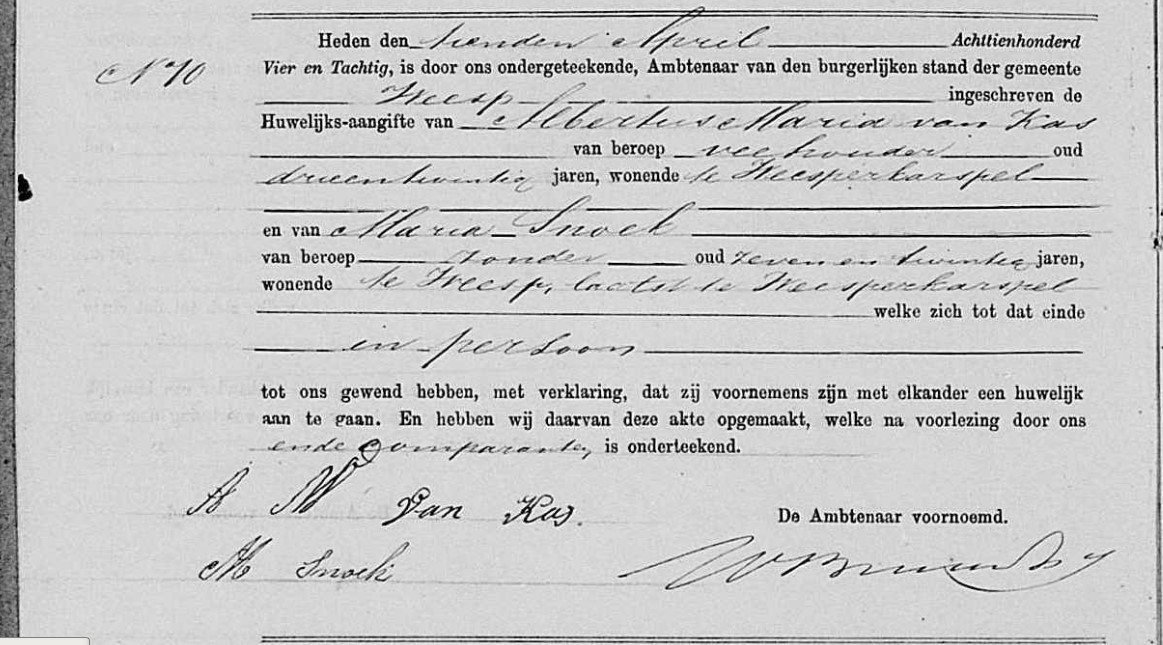 Heden den tienden April Achttienhonderd
N 10 Vier en Tachtig, is door ons ondergeteekende, Ambtenaar van den burgerlijken stand der gemeente
Weesp ingeschreven de
Huwelijks-aangifte van Albertus Maria van Kas
van beroep veehouder oud
drieentwintig jaren, wonende te Weesperkarspel
en van Maria Snoek
van beroep zonder oud zeven en twintig jaren,
wonende te Weesp, laatst te Weesperkarspel
welke zich tot dat einde
in persoon
tot ons gewend hebben, met verklaring, dat zij voornemens zijn met elkander een huwelijk
aan te gaan. En hebben wij daarvan deze akte opgemaakt, welke na voorlezing door ons
en de Comparanten, is onderteekend.
A M van Kas.
De Ambtenaar voornoemd.
M Snoek